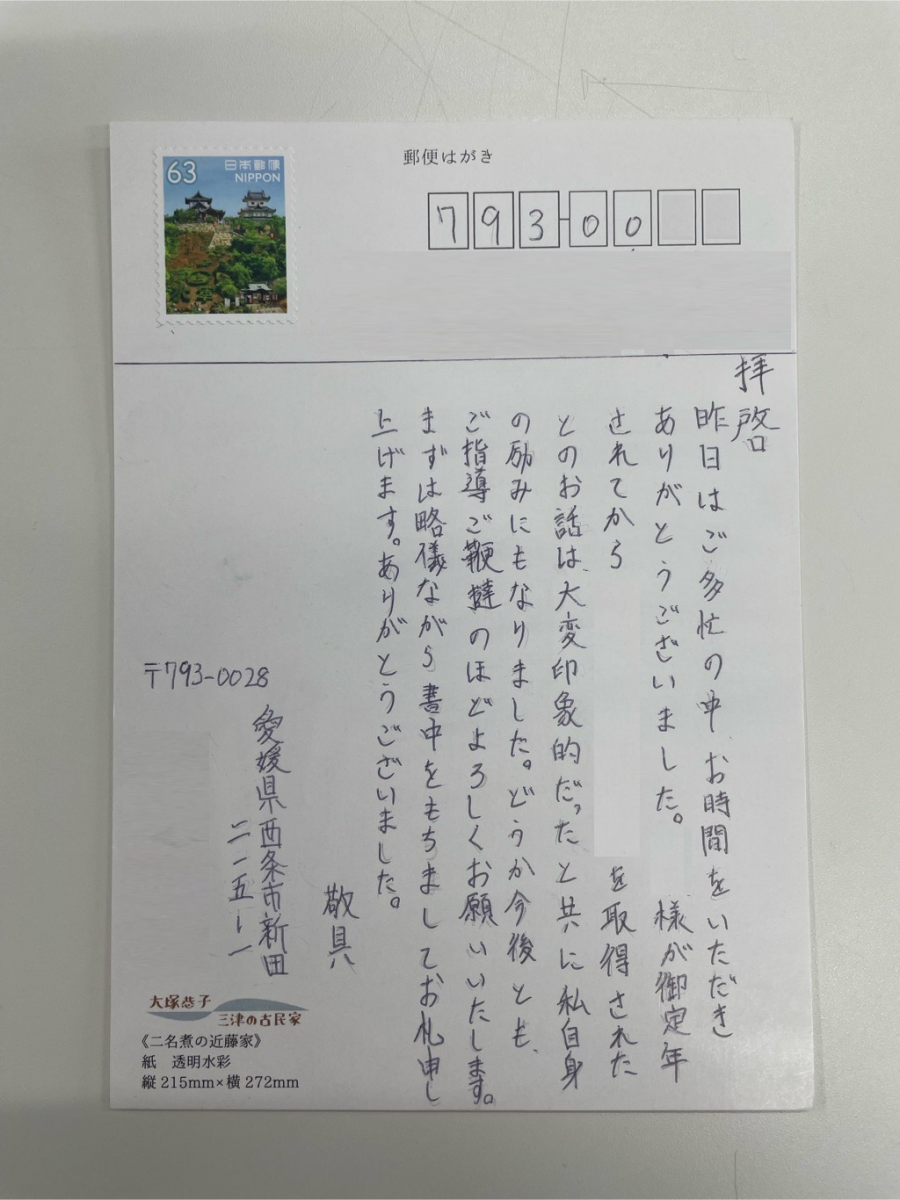 63
日本郵便
NIPPON
郵便はがき
793-00
拝啓
昨日はご多忙の中、お時間をいただき
ありがとうございました。 様が御定年
されてから を取得された
とのお話は、大変印象的だったと共に私自身
の励みにもなりました。どうか今後とも、
ご指導ご鞭撻のほどよろしくお願いいたします。
まずは略儀ながら書中をもちましてお礼申し
上げます。ありがとうございました。
敬具
〒793-0028
愛媛県西条市新田
二一五-一
大塚恭子
三津の古民家
《二名煮の近藤家》
紙 透明水彩
縦215mm×横272mm